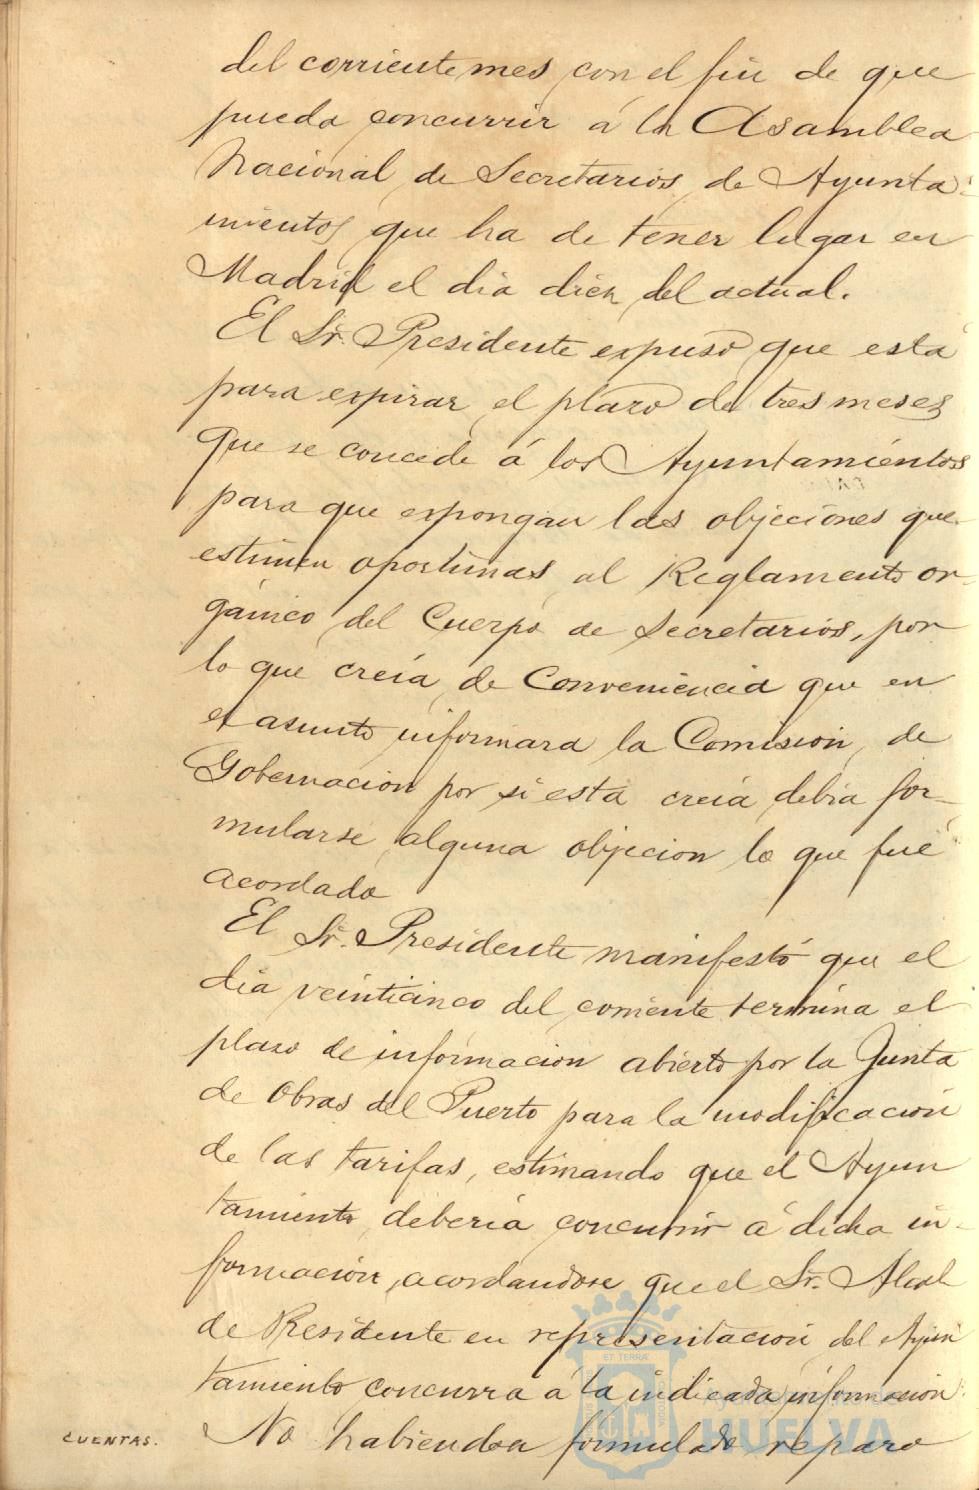 del corriente mes con el fin de que
pueda concurrir á la Asamblea
Nacional de Secretarios de Ayunta-
mientos que ha de tener lugar en
Madrid el dia diez del actual.
El Sr. Presidente expuso que está
para expirar el plazo de tres meses
que se concede á los Ayuntamientos
para que expongan las objeciones que
estimen oportunas al Reglamento or-
gánico del Cuerpo de Secretarios, por
lo que creía de Conveniencia que en
el asunto informara la Comisión de
Gobernación por si esta creia debia for-
mularse alguna objecion lo que fué
acordado
El Sr. Presidente manifestó que el
dia veinticinco del corriente termina el
plazo de informacion abierto por la Junta
de Obras del Puerto para la modificación
de las tarifas, estimando que el Ayun
tamiento debería concurrir á dicha in-
formación, acordandose que el Sr. Alcal
de Presidente en representación del Ayun
tamiento concurra á la indicada información
CUENTAS. No habiendose formulado reparo
ET TERRA
Ayuntamiento de
HUELVA